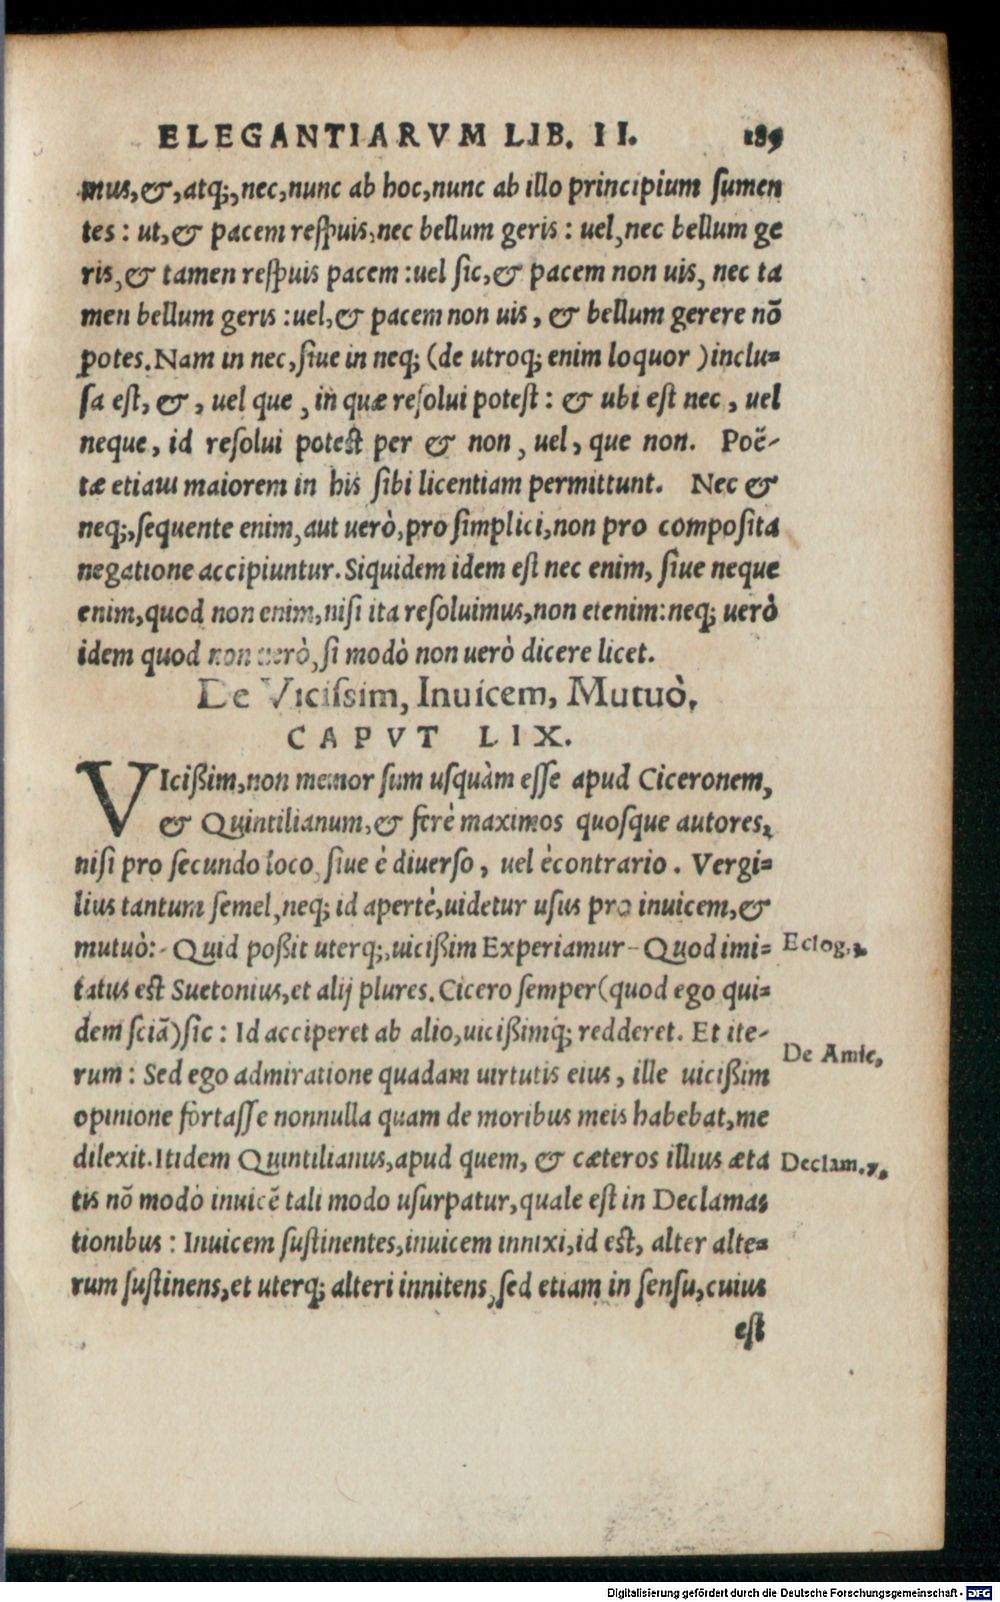 ELEGANTIARVM LIB. II. 189
mus,&,atq;,nec,nunc ab hoc,nunc ab illo principium sumen
tes : ut,& pacem respuis,nec bellum geris : uel,nec bellum ge
ris,& tamen respuis pacem :uel sic,& pacem non uis, nec ta
men bellum geris :uel,& pacem non uis, & bellum gerere nō
potes. Nam in nec, siue in neq; (de utroq; enim loquor )inclu-
sa est, &, uel que , in quæ resolui potest : & ubi est nec , uel
neque, id resolui potest per & non , uel, que non. Poë-
tæ etiam maiorem in his sibi licentiam permittunt. Nec &
neq;,sequente enim,aut uerò,pro simplici,non pro composita
negatione accipiuntur. Siquidem idem est nec enim, siue neque
enim,quod non enim,nisi ita resoluimus,non etenim:neq; uerò
idem quod non uerò, si modò non uerò dicere licet.
De Vicissim, Inuicem, Mutuò,
CAPVT LIX.
VIcißim,non memor sum usquàm esse apud Ciceronem,
& Quintilianum,& ferè maximos quosque autores,
nisi pro secundo loco, siue è diuerso, uel ècontrario. Vergi-
lius tantum semel,neq; id apertè,uidetur usus pro inuicem,&
mutuò:- Quid poßit uterq;,uicißim Experiamur- Quod imi-
Eclog.3.
tatus est Suetonius,et alij plures. Cicero semper(quod ego qui-
dem sciā)sic : Id acciperet ab alio,uicißimq́; redderet. Et ite-
De Amic,
rum : Sed ego admiratione quadam uirtutis eius, ille uicißim
opinione fortasse nonnulla quam de moribus meis habebat,me
dilexit. Itidem Quintilianus,apud quem, & cæteros illius æta
Declam.7.
tis nō modò inuicē tali modo usurpatur,quale est in Declama-
tionibus : Inuicem sustinentes,inuicem innixi,id est, alter alte-
rum sustinens,et uterq; alteri innitens, sed etiam in sensu,cuius
est
Digitalisierung gefördert durch die Deutsche Forschungsgemeinschaft - DFG